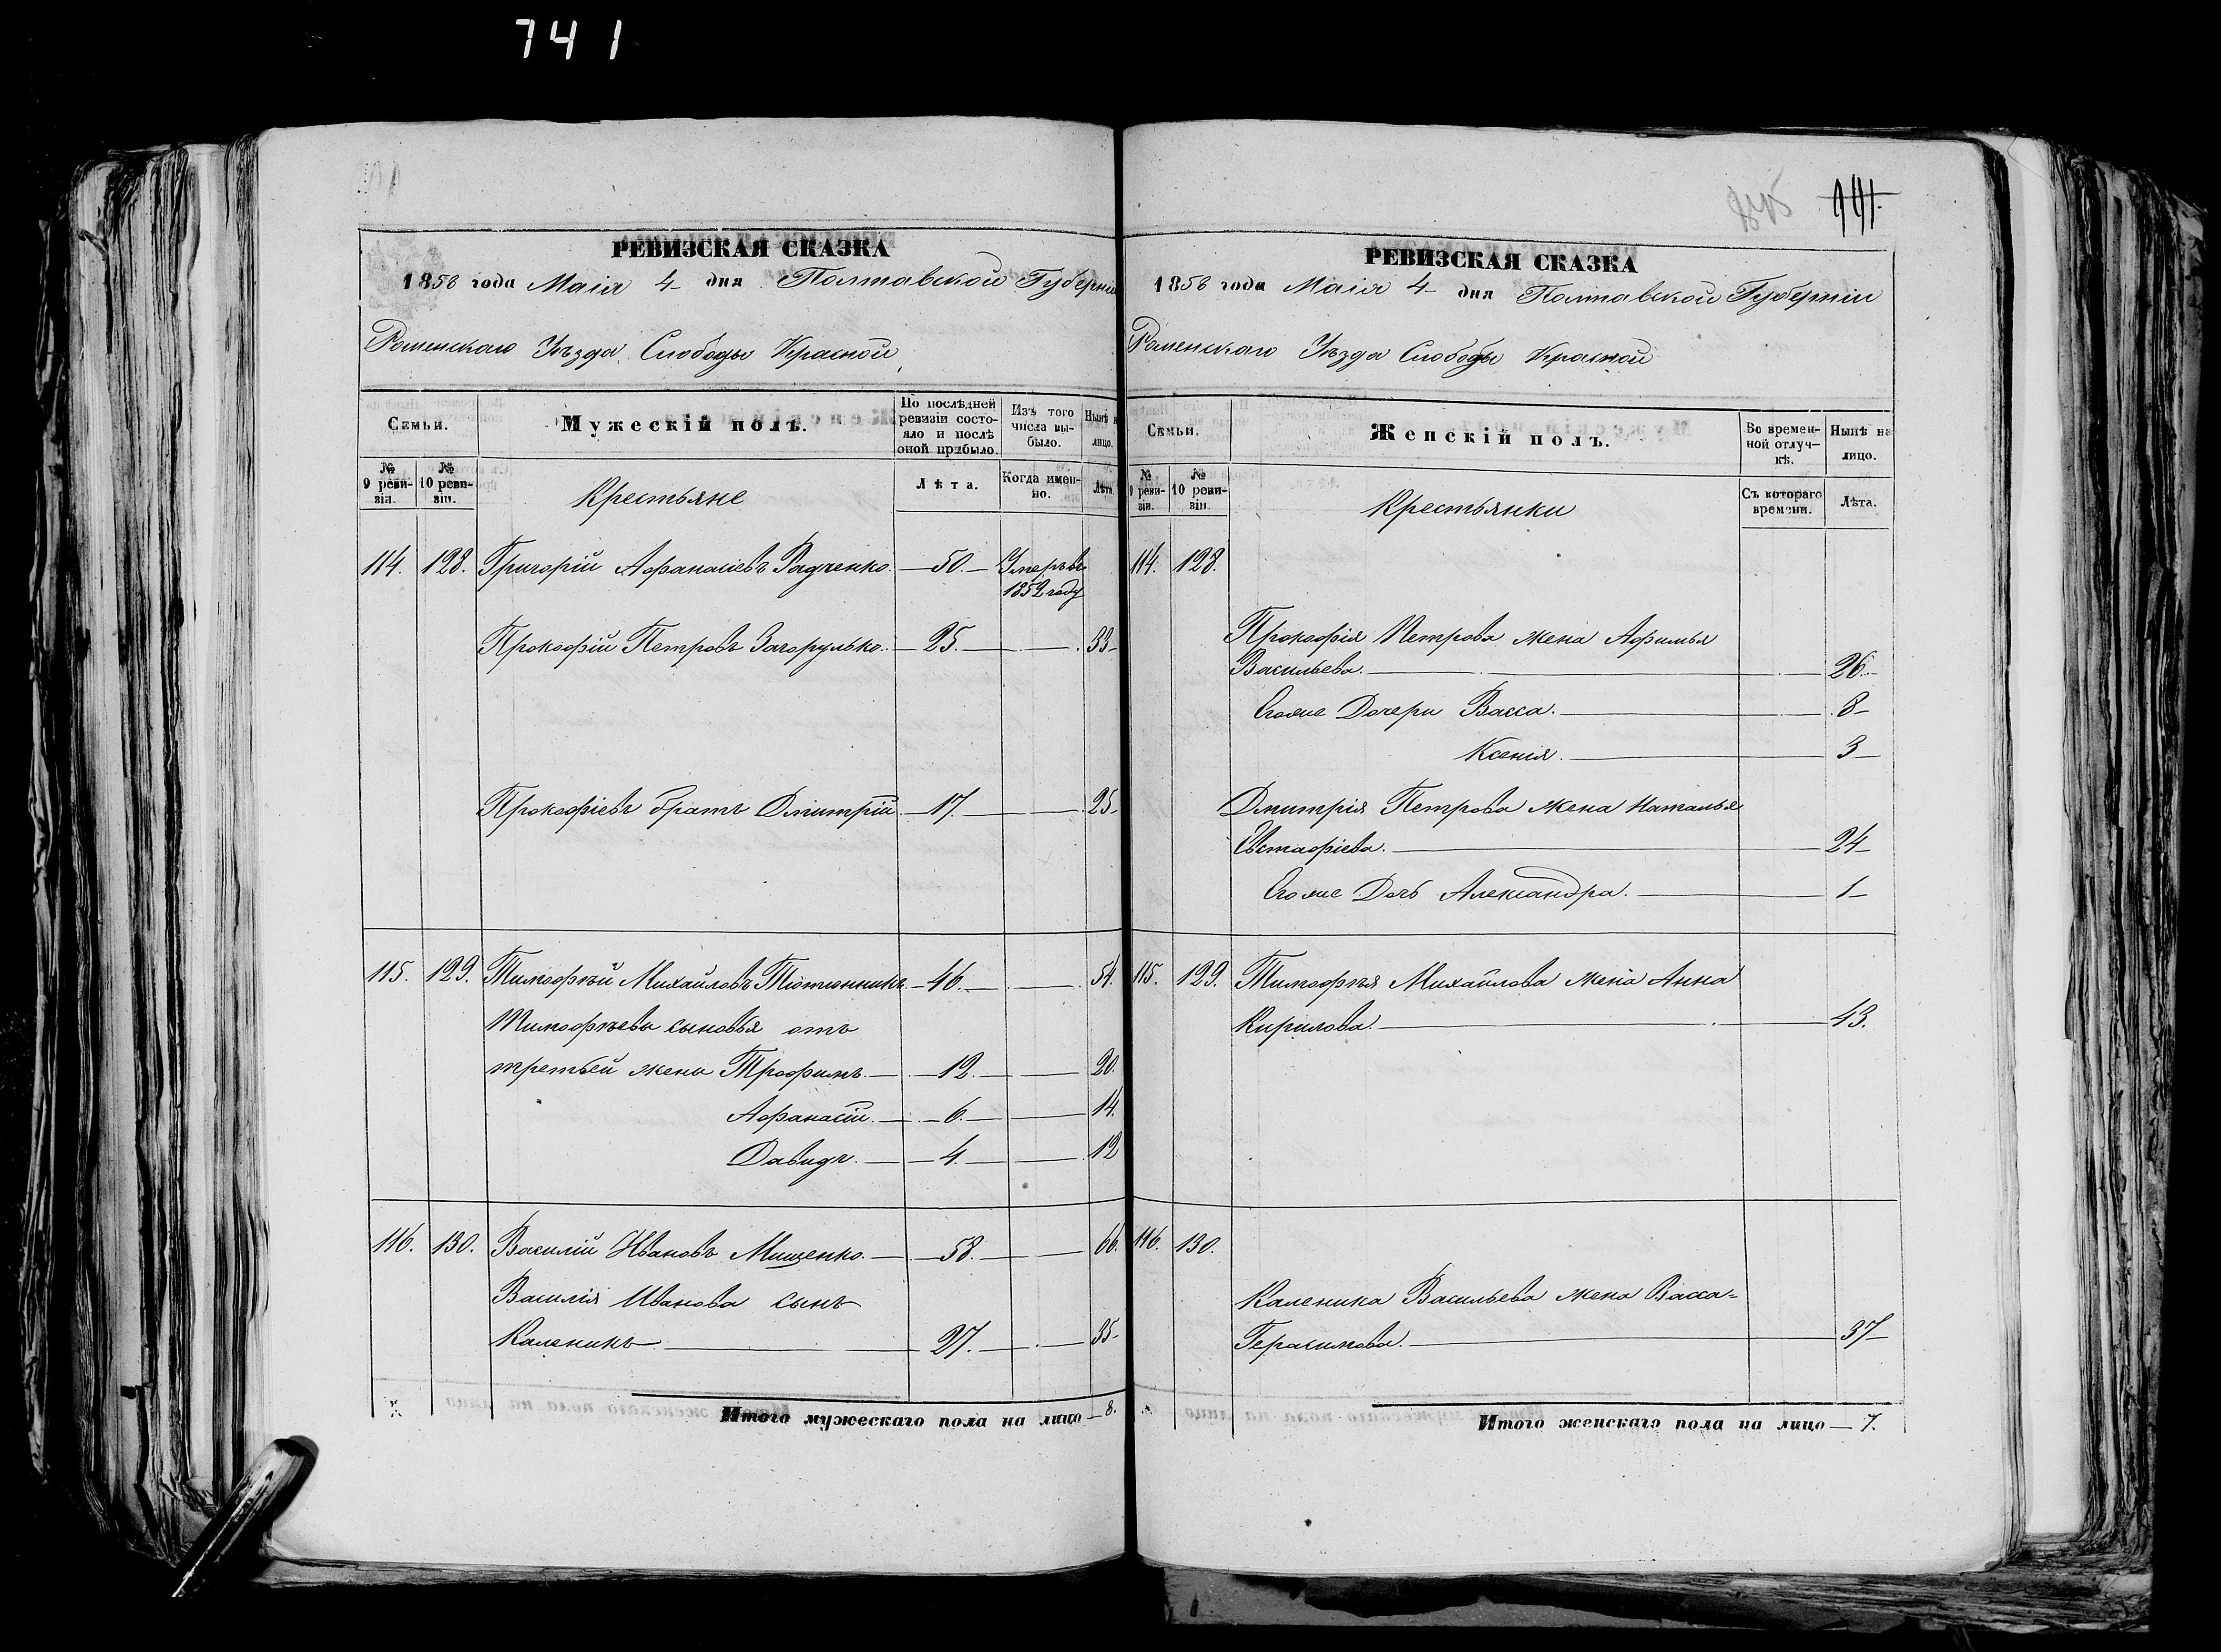 741
РЕВИЗСКАЯ СКАЗКА
1858 года Маія 4 дня Полтавской Губерніи
Роменскаго Уѣзда Слободы Красной
Семьи.
Мужескій полъ.
По послѣдней ревизіи состояло и послѣ оной прибыло.
Изъ того числа выбыло.
Нынѣ на лицо.
№ 9 ревизіи.
№ 10 ревизіи.
Крестьяне
Лѣта.
Когда именно.
Лѣта.
114. 128. Григорій Афанасіевъ Радченко. 50. Умеръ въ
1852 году
Прокофій Петровъ Загорулько. 25. 33
Прокофіевъ братъ Дмитрій 17. 25
115. 129. Тимофѣй Михайловъ Тютюнникъ 46. 54.
Тимофѣевы сыновья отъ
третьей жены Трофимъ. 12. 20.
Афанасій. 6. 14.
Давидъ. 4. 12
116. 130. Василій Ивановъ Мищенко. 58. 66.
Василія Иванова сынъ
Каленикъ 27. 35
Итого мужескаго пола на лицо 8.
845 741
РЕВИЗСКАЯ СКАЗКА
1858 года Маія 4 дня Полтавской Губерніи
Роменскаго Уѣзда Слободы Красной
Семьи.
Женскій полъ.
Во временной отлучкѣ.
Нынѣ на лицо.
№ 9 ревизіи.
№ 10 ревизіи.
Крестьянки
Съ котораго времени.
Лѣта.
114. 128.
Прокофія Петрова жена Афимья
Васильева. 26.
Егоже Дочери Васса. 8
Ксенія. 3
Дмитрія Петрова жена Наталья
Евстафіева. 24
Егоже Дочь Александра. 1
115. 129. Тимофѣя Михайлова жена Анна
Кирилова. 43.
116. 130.
Каленика Васильева жена Васса
Герасимова. 37
Итого женскаго пола на лицо 7.